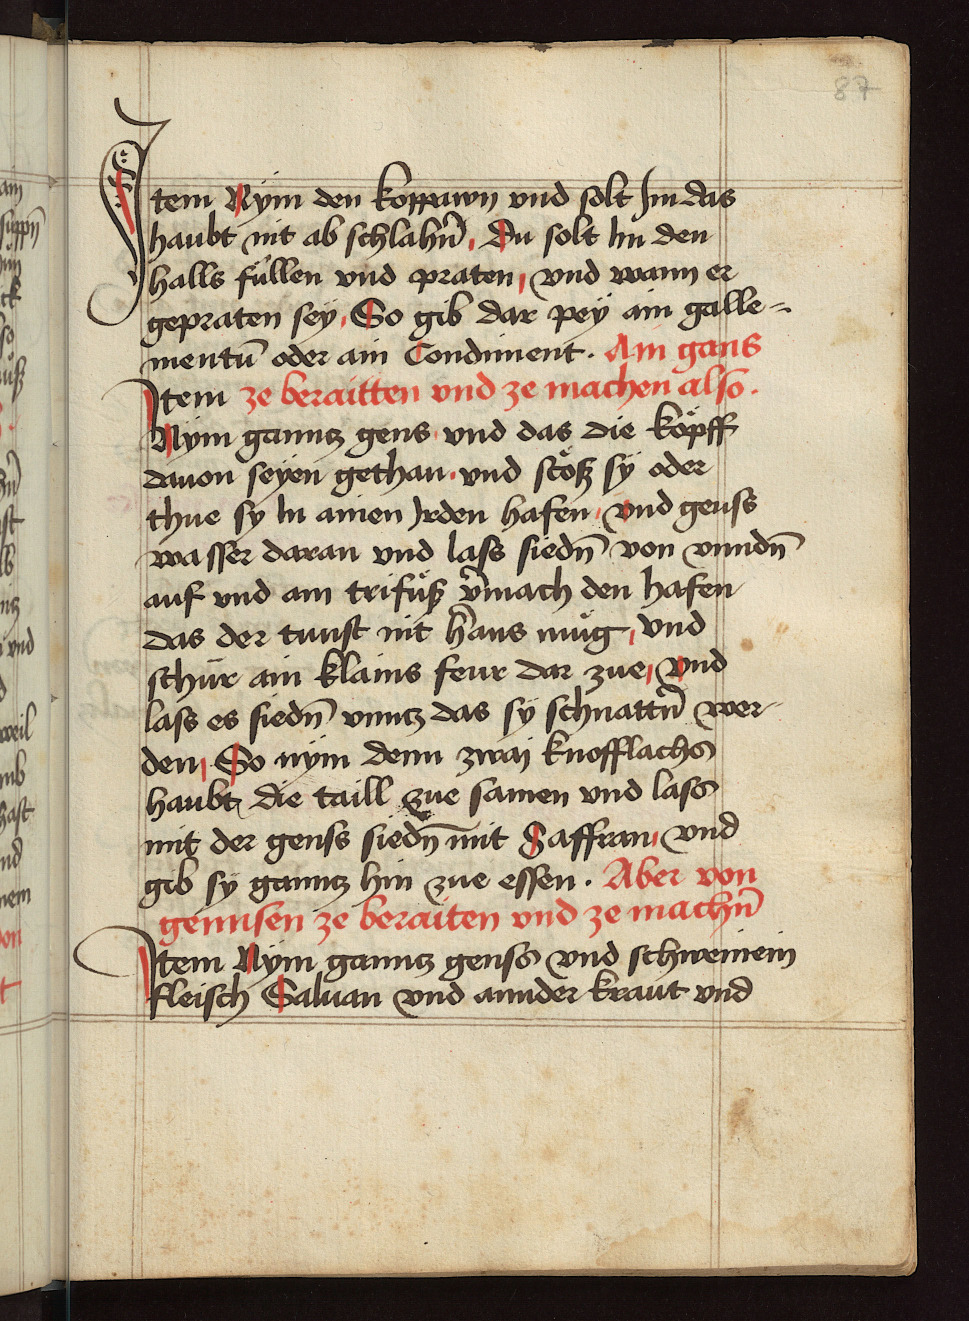 87
Item Nym den koppawn vnd solt Im das
haubt nit ab schlahn̄, Du solt Im den
halls füllen vnd praten, vnd wann er
gepraten sey, So gib dar pey ain galle-
mentū oder ain Condiment. Ain gans
Item ze beraitten vnd ze machen also.
Nym ganntz gens vnd das die köpff
dauon seyen gethan, vnd stöß sy oder
thue sy In ainen Irden hafen, vnd geuss
wasser daran vnd lass siedn̄ von vnndn̄
auf vnd am trifüß v̄mach den hafen
das der tunst nit h̄aus müg, vnd
schür ain klains feur dar zue, vnd
lass es siedn̄ vnntz das sy schnattn̄ wer-
den, So nym denn zwai knofflachs
haubt, die taill zue samen vnd lass
mit der genss siedn̄ mit Saffran, vnd
gib sy ganntz hin zue essen. Aber von
gennsen ze beraiten vnd ze machn̄
Item Nym ganntz genss vnd schweinein
fleisch Saluan vnd annder kraut vnd